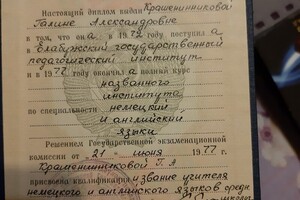 Настоящий диплом выдан Крашенинниковой
Галине Александровне
в том, что она в 1972 году поступила в
Елабужский государственный
педагогический институт
и в 1977 году окончила полный курс
названного
института
по специальности немецкий
и английский
языки
Решением Государственной экзаменационной
комиссии от "21" июня 1977 г.
Крашенинниковой Г. А.
присвоена квалификация и звание учителя
немецкого и английского языков средн
школы